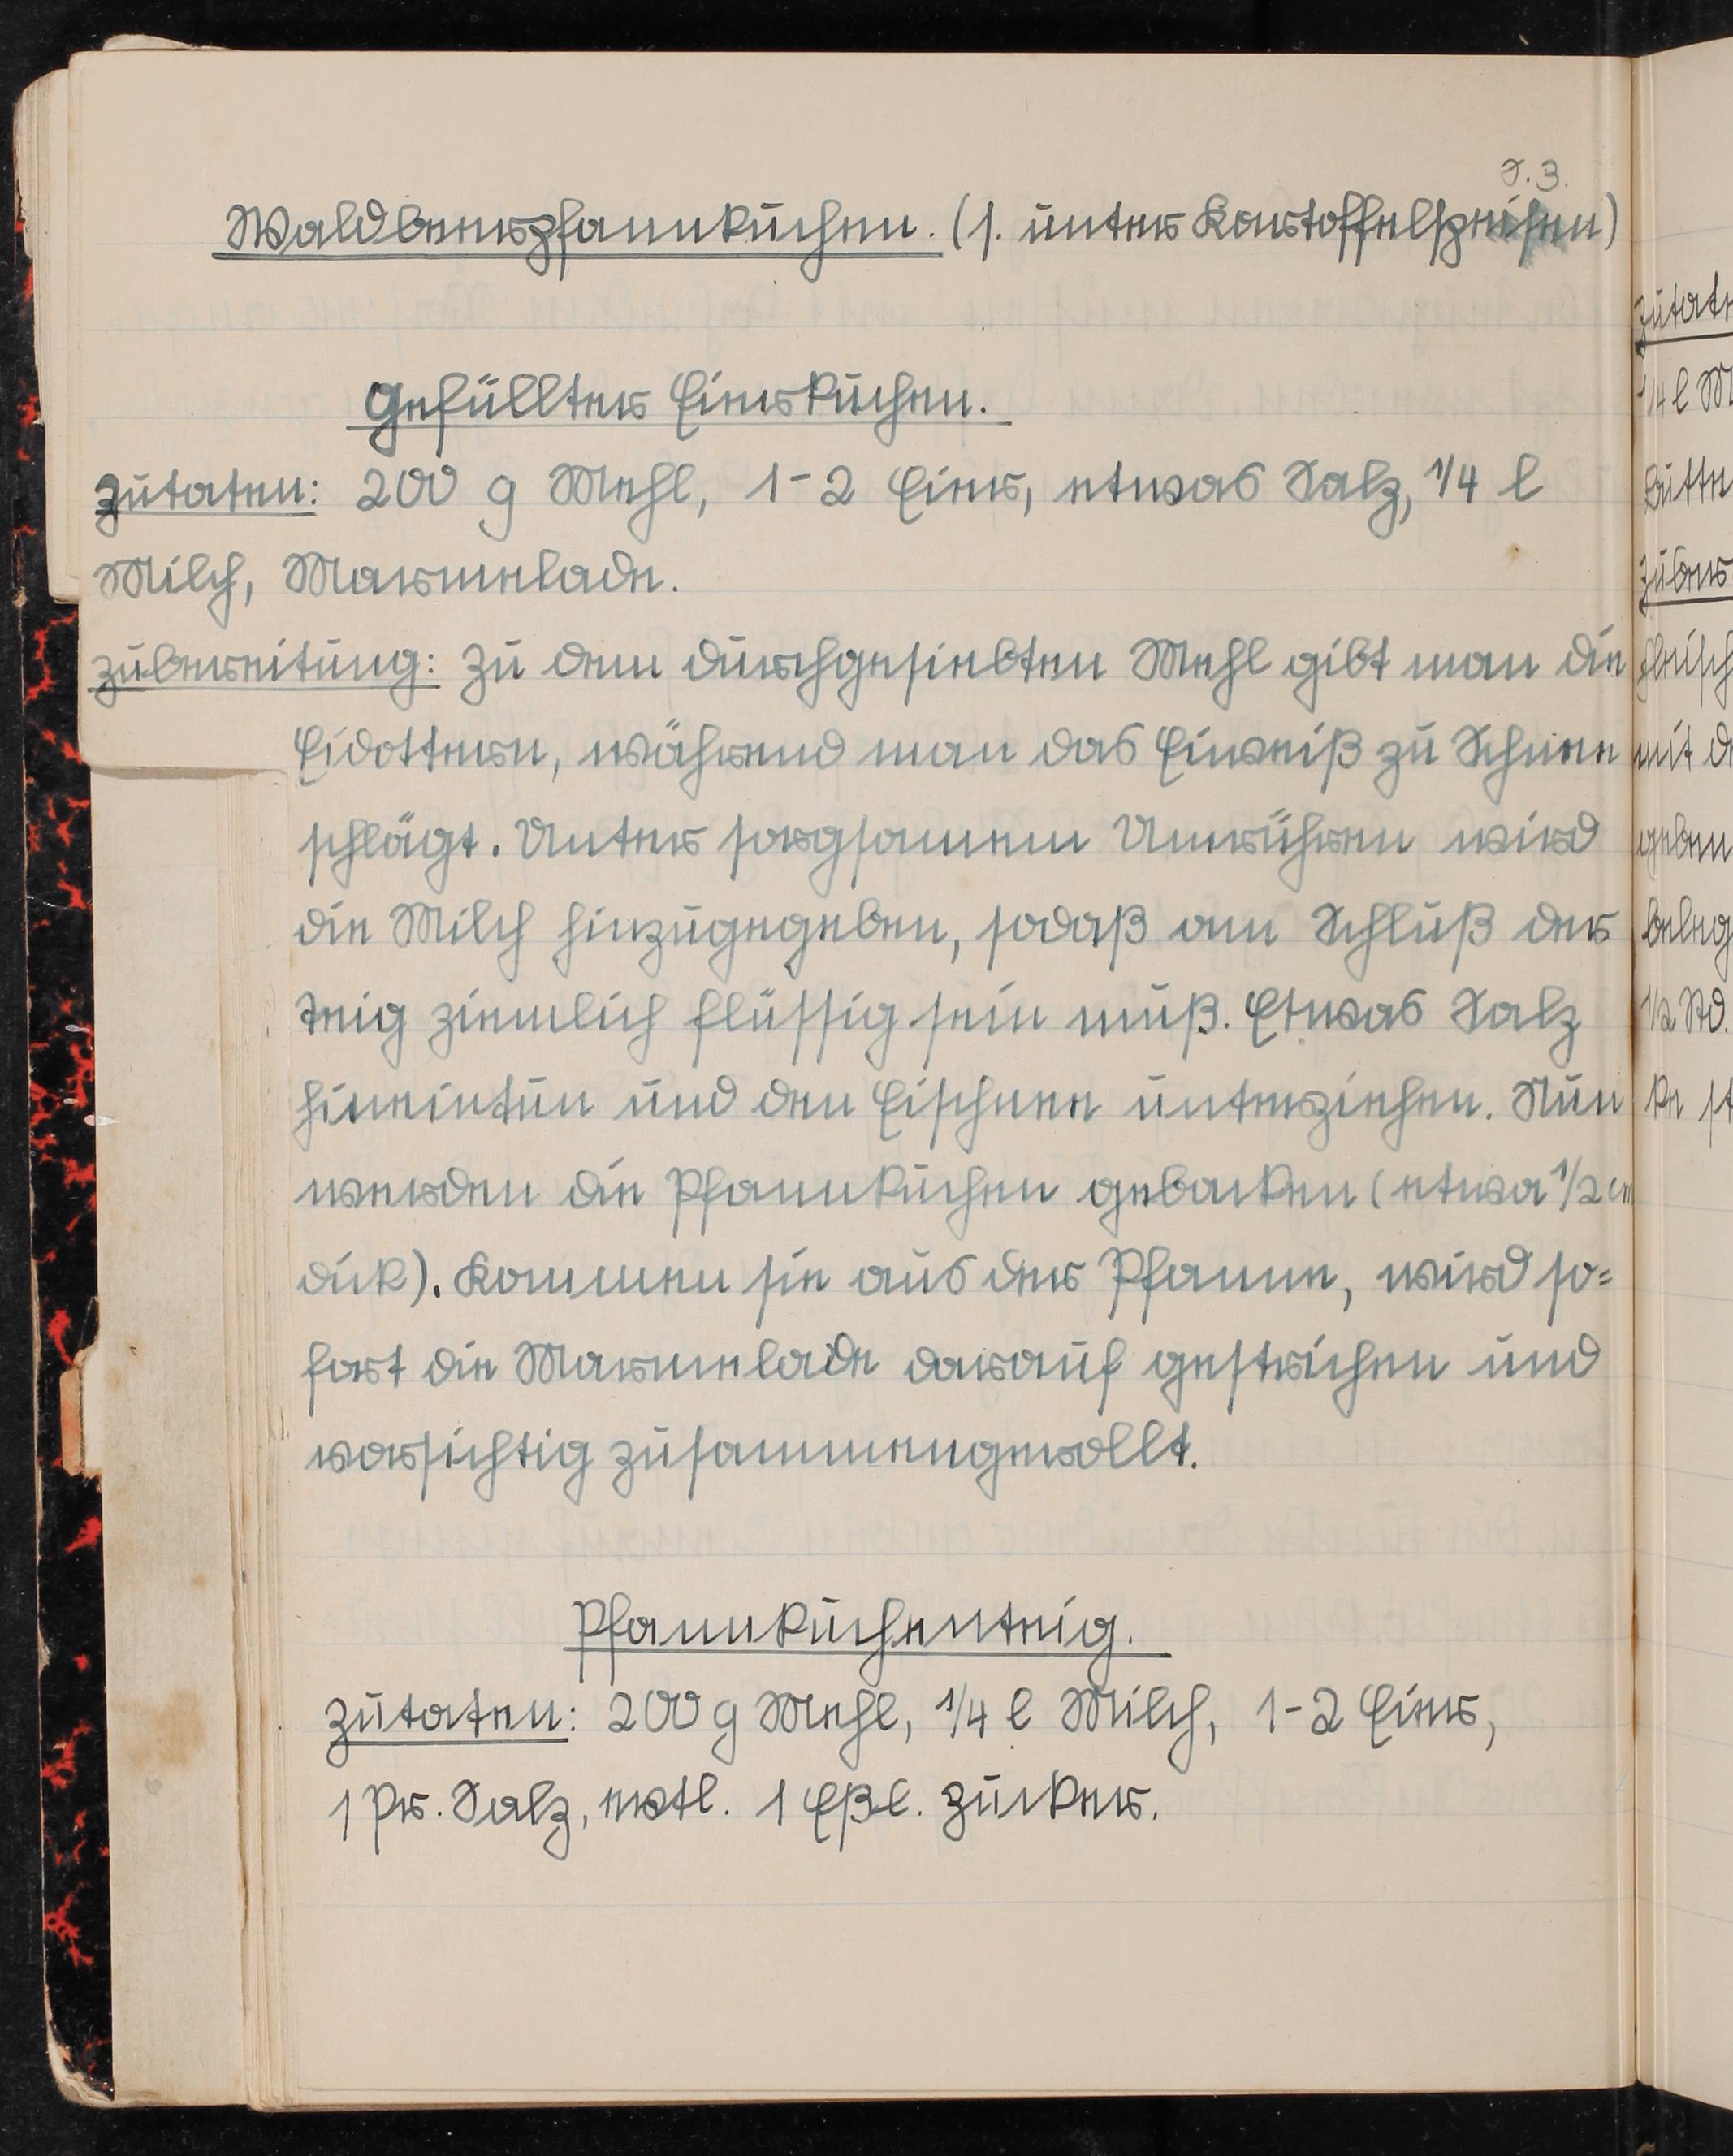 S. 3.
Waldbeerpfannkuchen. (s. unter Kartoffelspeisen)
Gefüllter Eierkuchen.
Zutaten: 200 g Mehl, 1-2 Eier, etwas Salz, 1/4 l
Milch, Marmelade.
Zubereitung: Zu dem durchgesiebten Mehl gibt man die
Eidottern, während man das Eiweiß zu Schnee
schlägt. Unter sorgsamem Umrühren wird
die Milch hinzugegeben, sodaß am Schluß der
Teig ziemlich flüssig sein muß. Etwas Salz
hineintun und den Eischnee unterziehen. Nun
werden die Pfannkuchen gebacken (etwa 1/2 cm
dick). Kommen sie aus der Pfanne, wird so=
fort die Marmelade darauf gestrichen und
vorsichtig zusammengerollt.
Pfannkuchenteig.
Zutaten: 200 g Mehl, 1/4 l Milch, 1-2 Eier,
1 Pr. Salz, evtl. 1 Eßl. Zucker.
Zutate
1/4 l M
Butte
Zuber
fleisch
mit d
geben
beleg
1/2 Std.
ke st